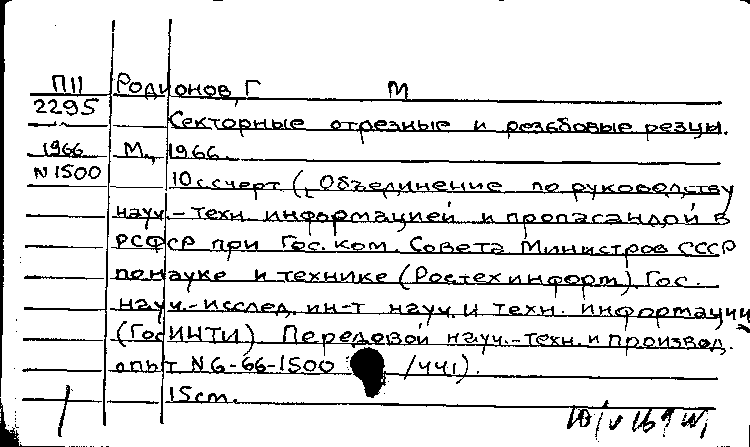 П11 Родионов, Г М
2295
Секторные отрезные и резьбовые резцы.
1966 М., 1966.
N 1500 10с счерт (Объединение по руководству
науч.-техн. информацией и пропагандой в
РСФСР при Гос. ком. Совета Министров СССР
по науке и технике (Ростехинформ). Гос.
науч.-исслед. ин-т науч. и техн. информации
(ГосИНТИ) Передовой науч.-техн. и производ.
опыт N6-66-1500 /441).
15cm.